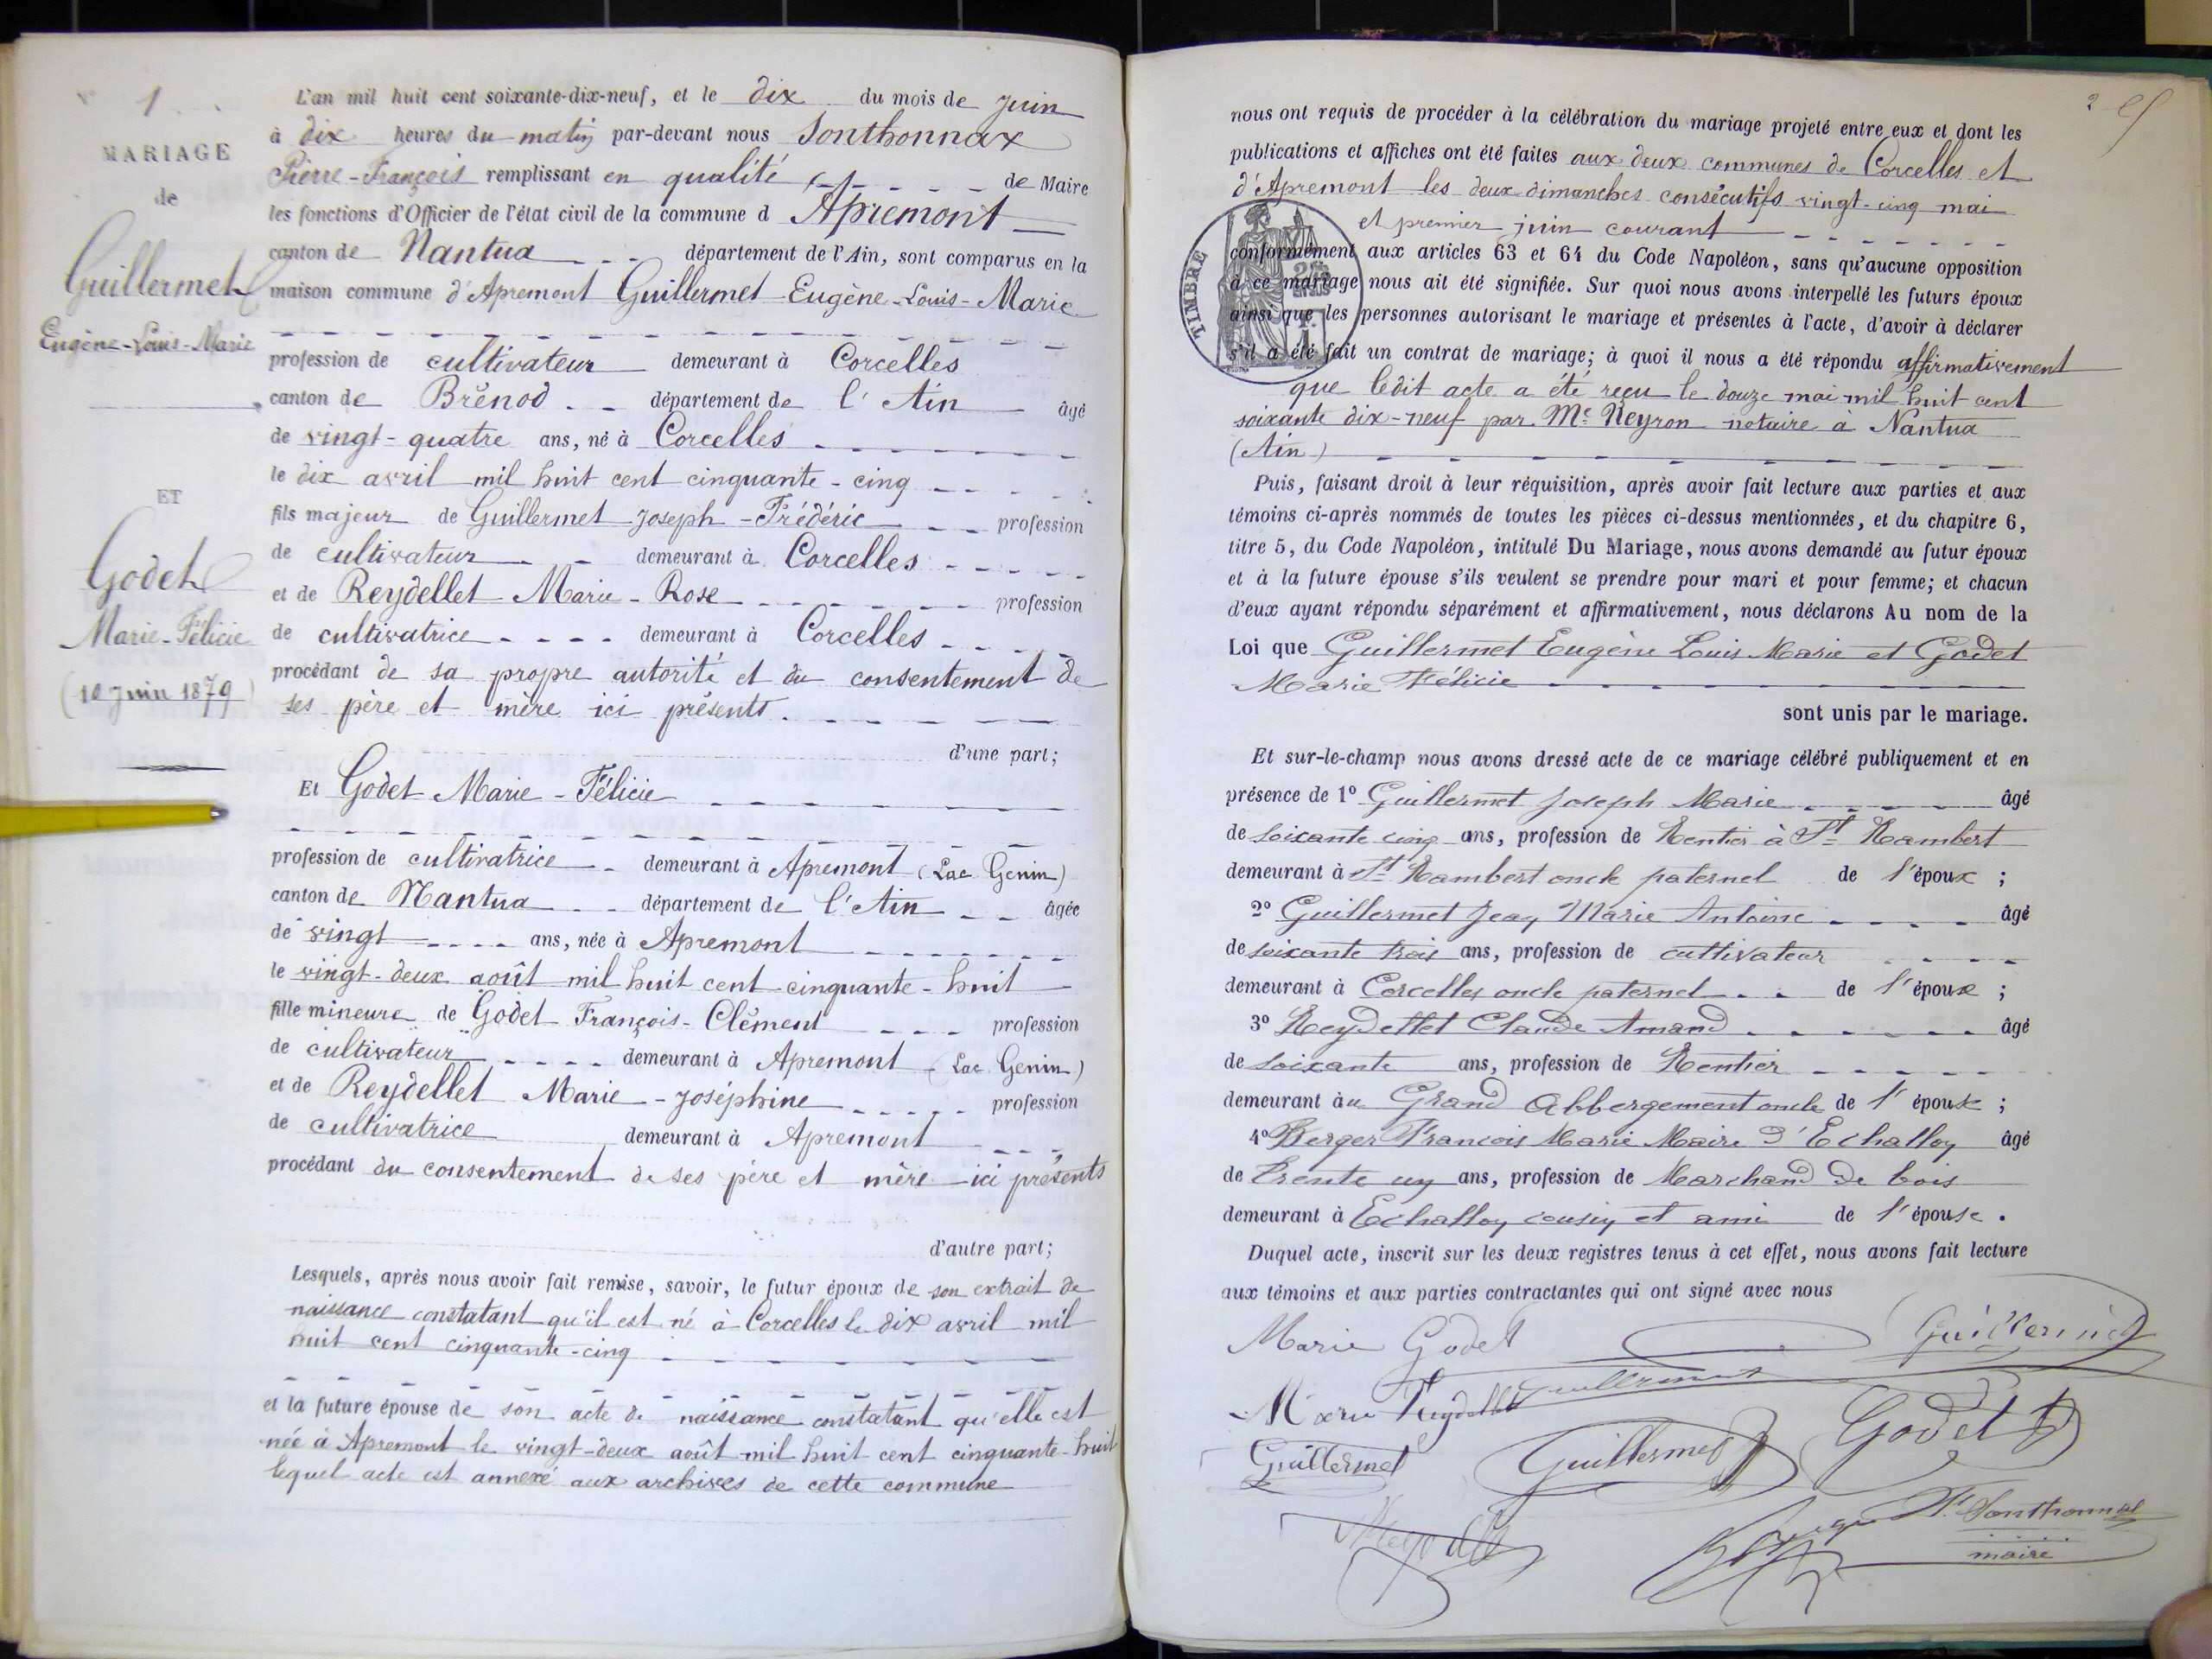 N° 1
MARIAGE
de
Guillermet
Eugène-Louis-Marie
ET
Godet
Marie-Félicie
(10 Juin 1879)
L'an mil huit cent soixante-dix-neuf, et le dix du mois de Juin
à dix heures du matin par-devant nous Sonthonnax
Pierre-François remplissant en qualité de Maire
les fonctions d'Officier de l'état civil de la commune d Apremont
canton de Nantua département de l'Ain, sont comparus en la
maison commune d'Apremont Guillermet Eugène-Louis-Marie
profession de cultivateur demeurant à Corcelles
canton de Brénod département de l'Ain âgé
de vingt-quatre ans, né à Corcelles
le dix avril mil huit cent cinquante-cinq
fils majeur de Guillermet Joseph-Frédéric profession
de cultivateur demeurant à Corcelles
et de Reydellet Marie-Rose profession
de cultivatrice demeurant à Corcelles
procédant de sa propre autorité et du consentement de
ses père et mère ici présents.
d'une part;
Et Godet Marie-Félicie
profession de cultivatrice demeurant à Apremont (Lac Genin)
canton de Nantua département de l'Ain âgée
de vingt ans, née à Apremont
le vingt-deux août mil huit cent cinquante-huit
fille mineure de Godet François-Clément profession
de cultivateur demeurant à Apremont (Lac Genin)
et de Reydellet Marie-Joséphine profession
de cultivatrice demeurant à Apremont
procédant du consentement de ses père et mère ici présents
d'autre part;
Lesquels, après nous avoir fait remise, savoir, le futur époux de son extrait de
naissance constatant qu'il est né à Corcelles le dix avril mil
huit cent cinquante-cinq
et la future épouse de son acte de naissance constatant qu'elle est
née à Apremont le vingt-deux août mil huit cent cinquante-huit
lequel acte est annexé aux archives de cette commune
2
nous ont requis de procéder à la célébration du mariage projeté entre eux et dont les
publications et affiches ont été faites aux deux communes de Corcelles et
d'Apremont les deux dimanches consécutifs vingt-cinq mai
et premier juin courant
TIMBRE
conformément aux articles 63 et 64 du Code Napoléon, sans qu'aucune opposition
à ce mariage nous ait été signifiée. Sur quoi nous avons interpellé les futurs époux
ainsi que les personnes autorisant le mariage et présentes à l'acte, d'avoir à déclarer
s'il a été fait un contrat de mariage; à quoi il nous a été répondu affirmativement
que ledit acte a été reçu le douze mai mil huit cent
soixante dix-neuf par Me Neyron notaire à Nantua
(Ain)
Puis, faisant droit à leur réquisition, après avoir fait lecture aux parties et aux
témoins ci-après nommés de toutes les pièces ci-dessus mentionnées, et du chapitre 6,
titre 5, du Code Napoléon, intitulé Du Mariage, nous avons demandé au futur époux
et à la future épouse s'ils veulent se prendre pour mari et pour femme; et chacun
d'eux ayant répondu séparément et affirmativement, nous déclarons Au nom de la
Loi que Guillermet Eugène Louis Marie et Godet
Marie Félicie
sont unis par le mariage.
Et sur-le-champ nous avons dressé acte de ce mariage célébré publiquement et en
présence de 1° Guillermet Joseph Marie âgé
de soixante cinq ans, profession de Rentier à St Rambert
demeurant à St Rambert oncle paternel de l'époux ;
2° Guillermet Jean Marie Antoine âgé
de soixante trois ans, profession de cultivateur
demeurant à Corcelles oncle paternel de l'époux ;
3° Reydellet Claude Amand âgé
de soixante ans, profession de Rentier
demeurant au Grand Abbergement oncle de l'épouse ;
4° Berger François Marie Maire d'Echallon âgé
de trente un ans, profession de Marchand de bois
demeurant à Echallon cousin et ami de l'épouse .
Duquel acte, inscrit sur les deux registres tenus à cet effet, nous avons fait lecture
aux témoins et aux parties contractantes qui ont signé avec nous
Marie Godet
Guillermet
Marie Reydellet
Guillermet
Godet
Guillermet
Guillermet
Sonthonnax
maire